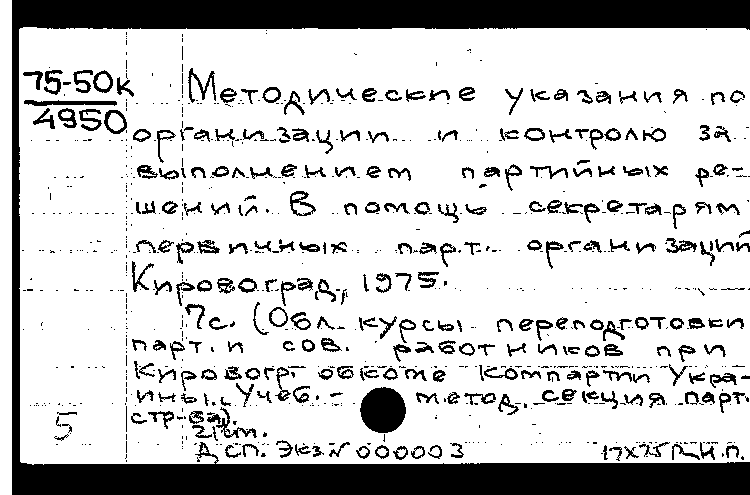 75-50к
4950
Методические указания по
организации и контролю за
выполнением партийных ре-
шений. В помощь секретарям
первичных парт. организаций
Кировоград, 1975.
7с. (Обл. курсы переподготовки
парт. и сов. работников при
Кировогр. обкоме Компартии Укра-
ины. Учеб.- метод. секция парт.
стр-ва).
21см.
ДСП. Экз N 000003
5